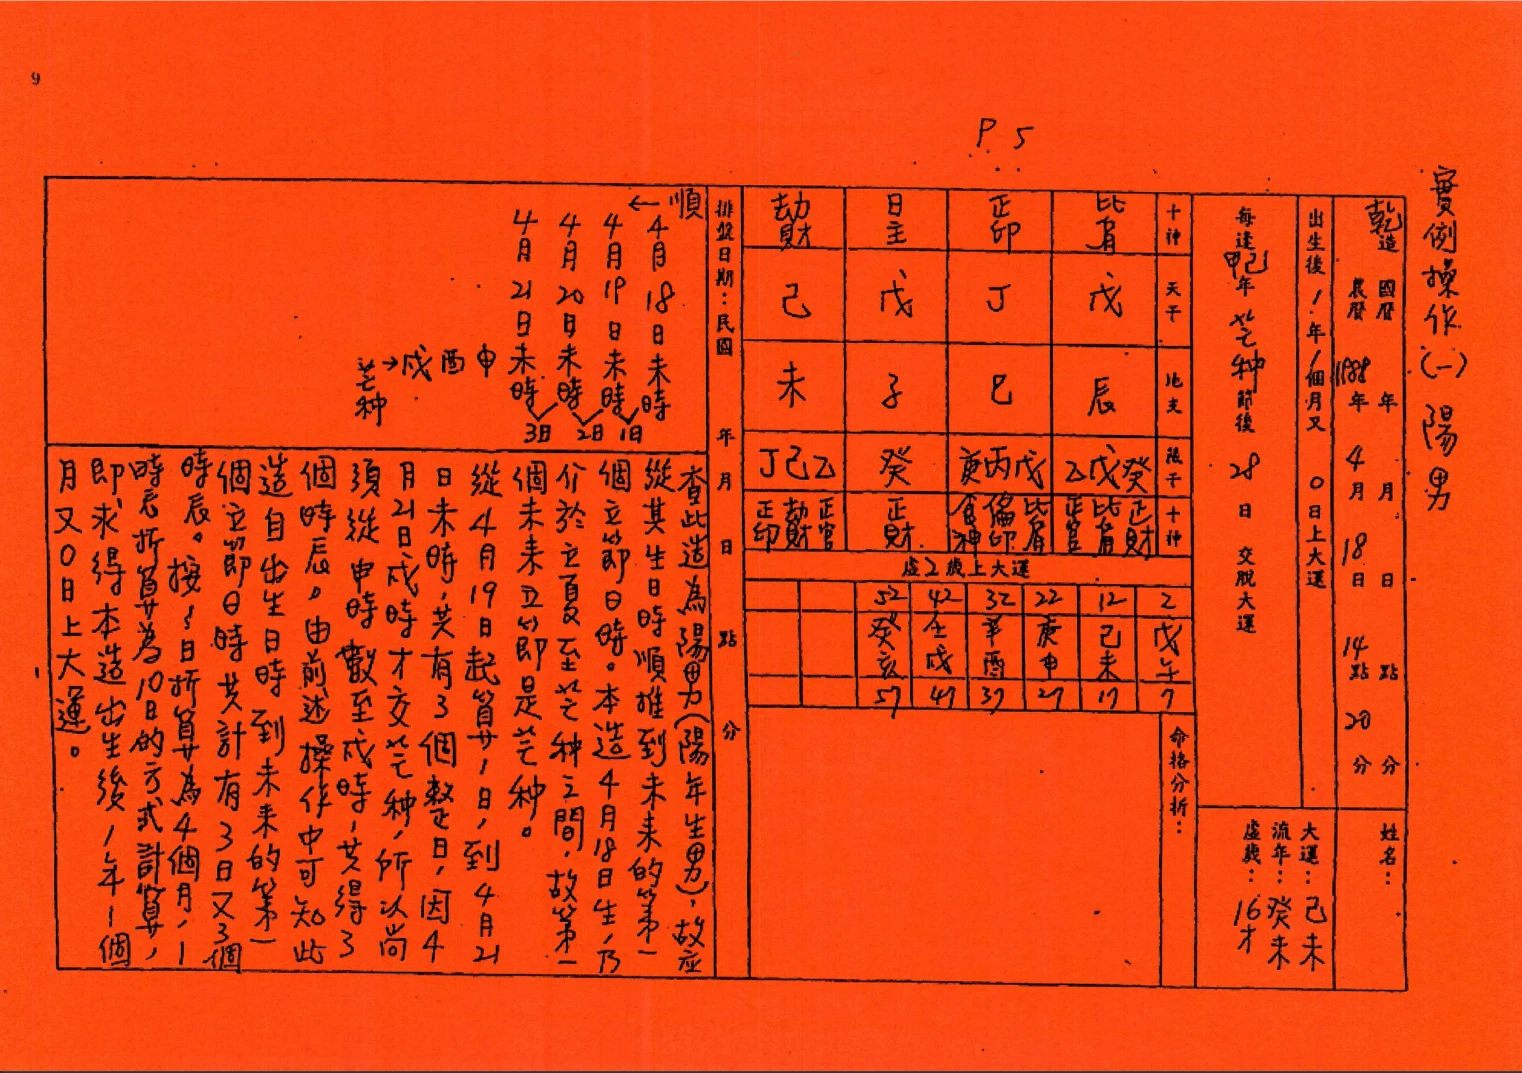 9
P. 5
實例操作(一)陽男
乾造 國曆 年 月 日 點 分
農曆 1988年 4月 18日 14點 20分
姓名：
出生後 1年 1個月又 0日上大運
每逢甲己年 芒種節後 28日 交脫大運
大運：己未
流年：癸未
虛歲：16才
十神 比肩 正印 日主 劫財
天干 戊 丁 戊 己
地支 辰 巳 子 未
藏干 癸戊乙 戊丙庚 癸 乙己丁
十神 正財 比肩 正官 比肩 偏印 食神 正財 正官 劫財 正印
虛2歲上大運
2 12 22 32 42 52
戊午 己未 庚申 辛酉 壬戌 癸亥
7 17 27 37 47 57
命格分析：
排盤日期：民國 年 月 日 點 分
順←
4月18日未時
4月19日未時
4月20日未時
4月21日未時
1日 2日 3日
申 酉 戌→芒種
查此造為陽男(陽年生男)，故應
從其生日時順推到未來的第一
個立節日時。本造4月18日生，乃
介於立夏至芒種之間，故第一
個未來立節即是芒種。
從4月19日起算1日，到4月21
日未時，共有3個整日，因4
月21日戌時才交芒種，所以尚
須從申時數至戌時，共得3
個時辰。由前述操作中可知此
造自出生日時到未來的第一
個立節日時共計有3日又3個
時辰。按1日折算為4個月，1
時辰折算為10日的方式計算，
即求得本造出生後1年1個
月又0日上大運。